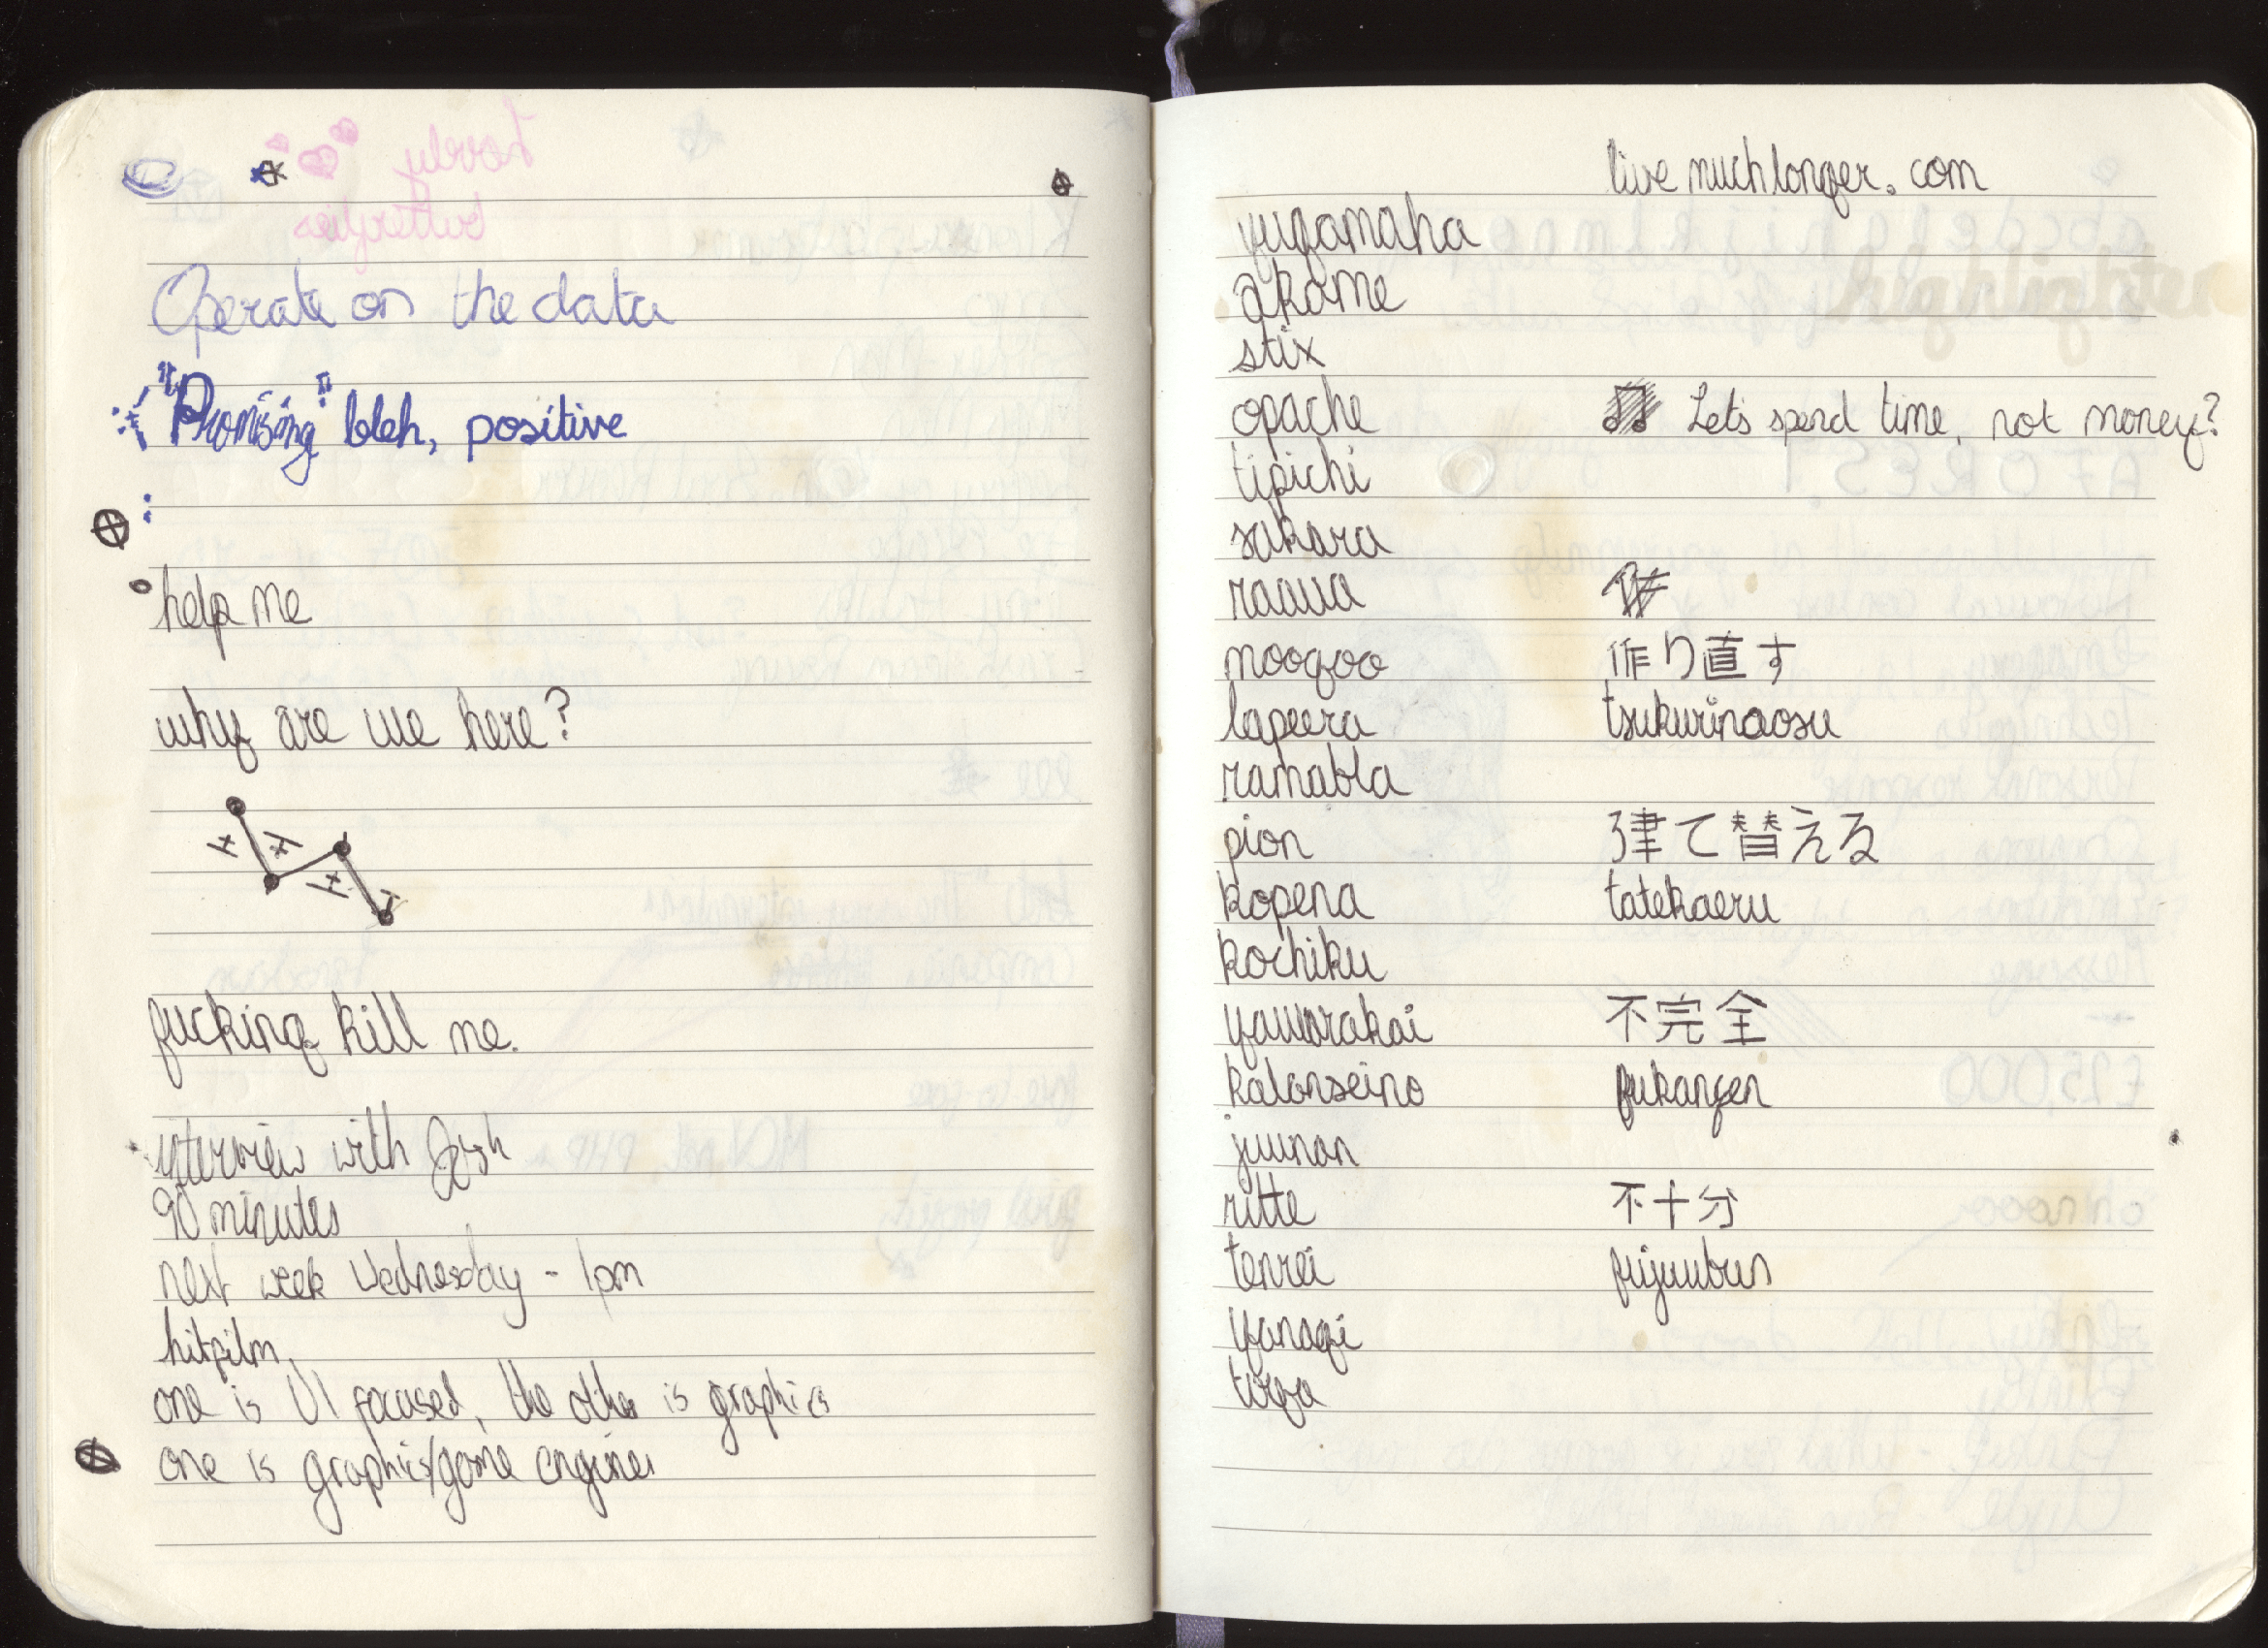 Lovely
butterflies
Operate on the data
"Promising" bleh, positive
help me
why are we here?
fucking kill me.
interview with Josh
90 minutes
next week Wednesday - 1pm
hitfilm
one is UI focused, the other is graphics
one is graphics/game engines
livemuchlonger.com
yugamaha
akame
stix
apache
tipichi
sakara
raaua
moogoo
lapeera
ramabla
pion
kopena
kochiku
yawarakai
kalanseino
juunan
ritte
tenrei
yanagi
toga
Let's spend time, not money?
作り直す
tsukurinaosu
建て替える
tatekaeru
不完全
fukanzen
不十分
fujuubun